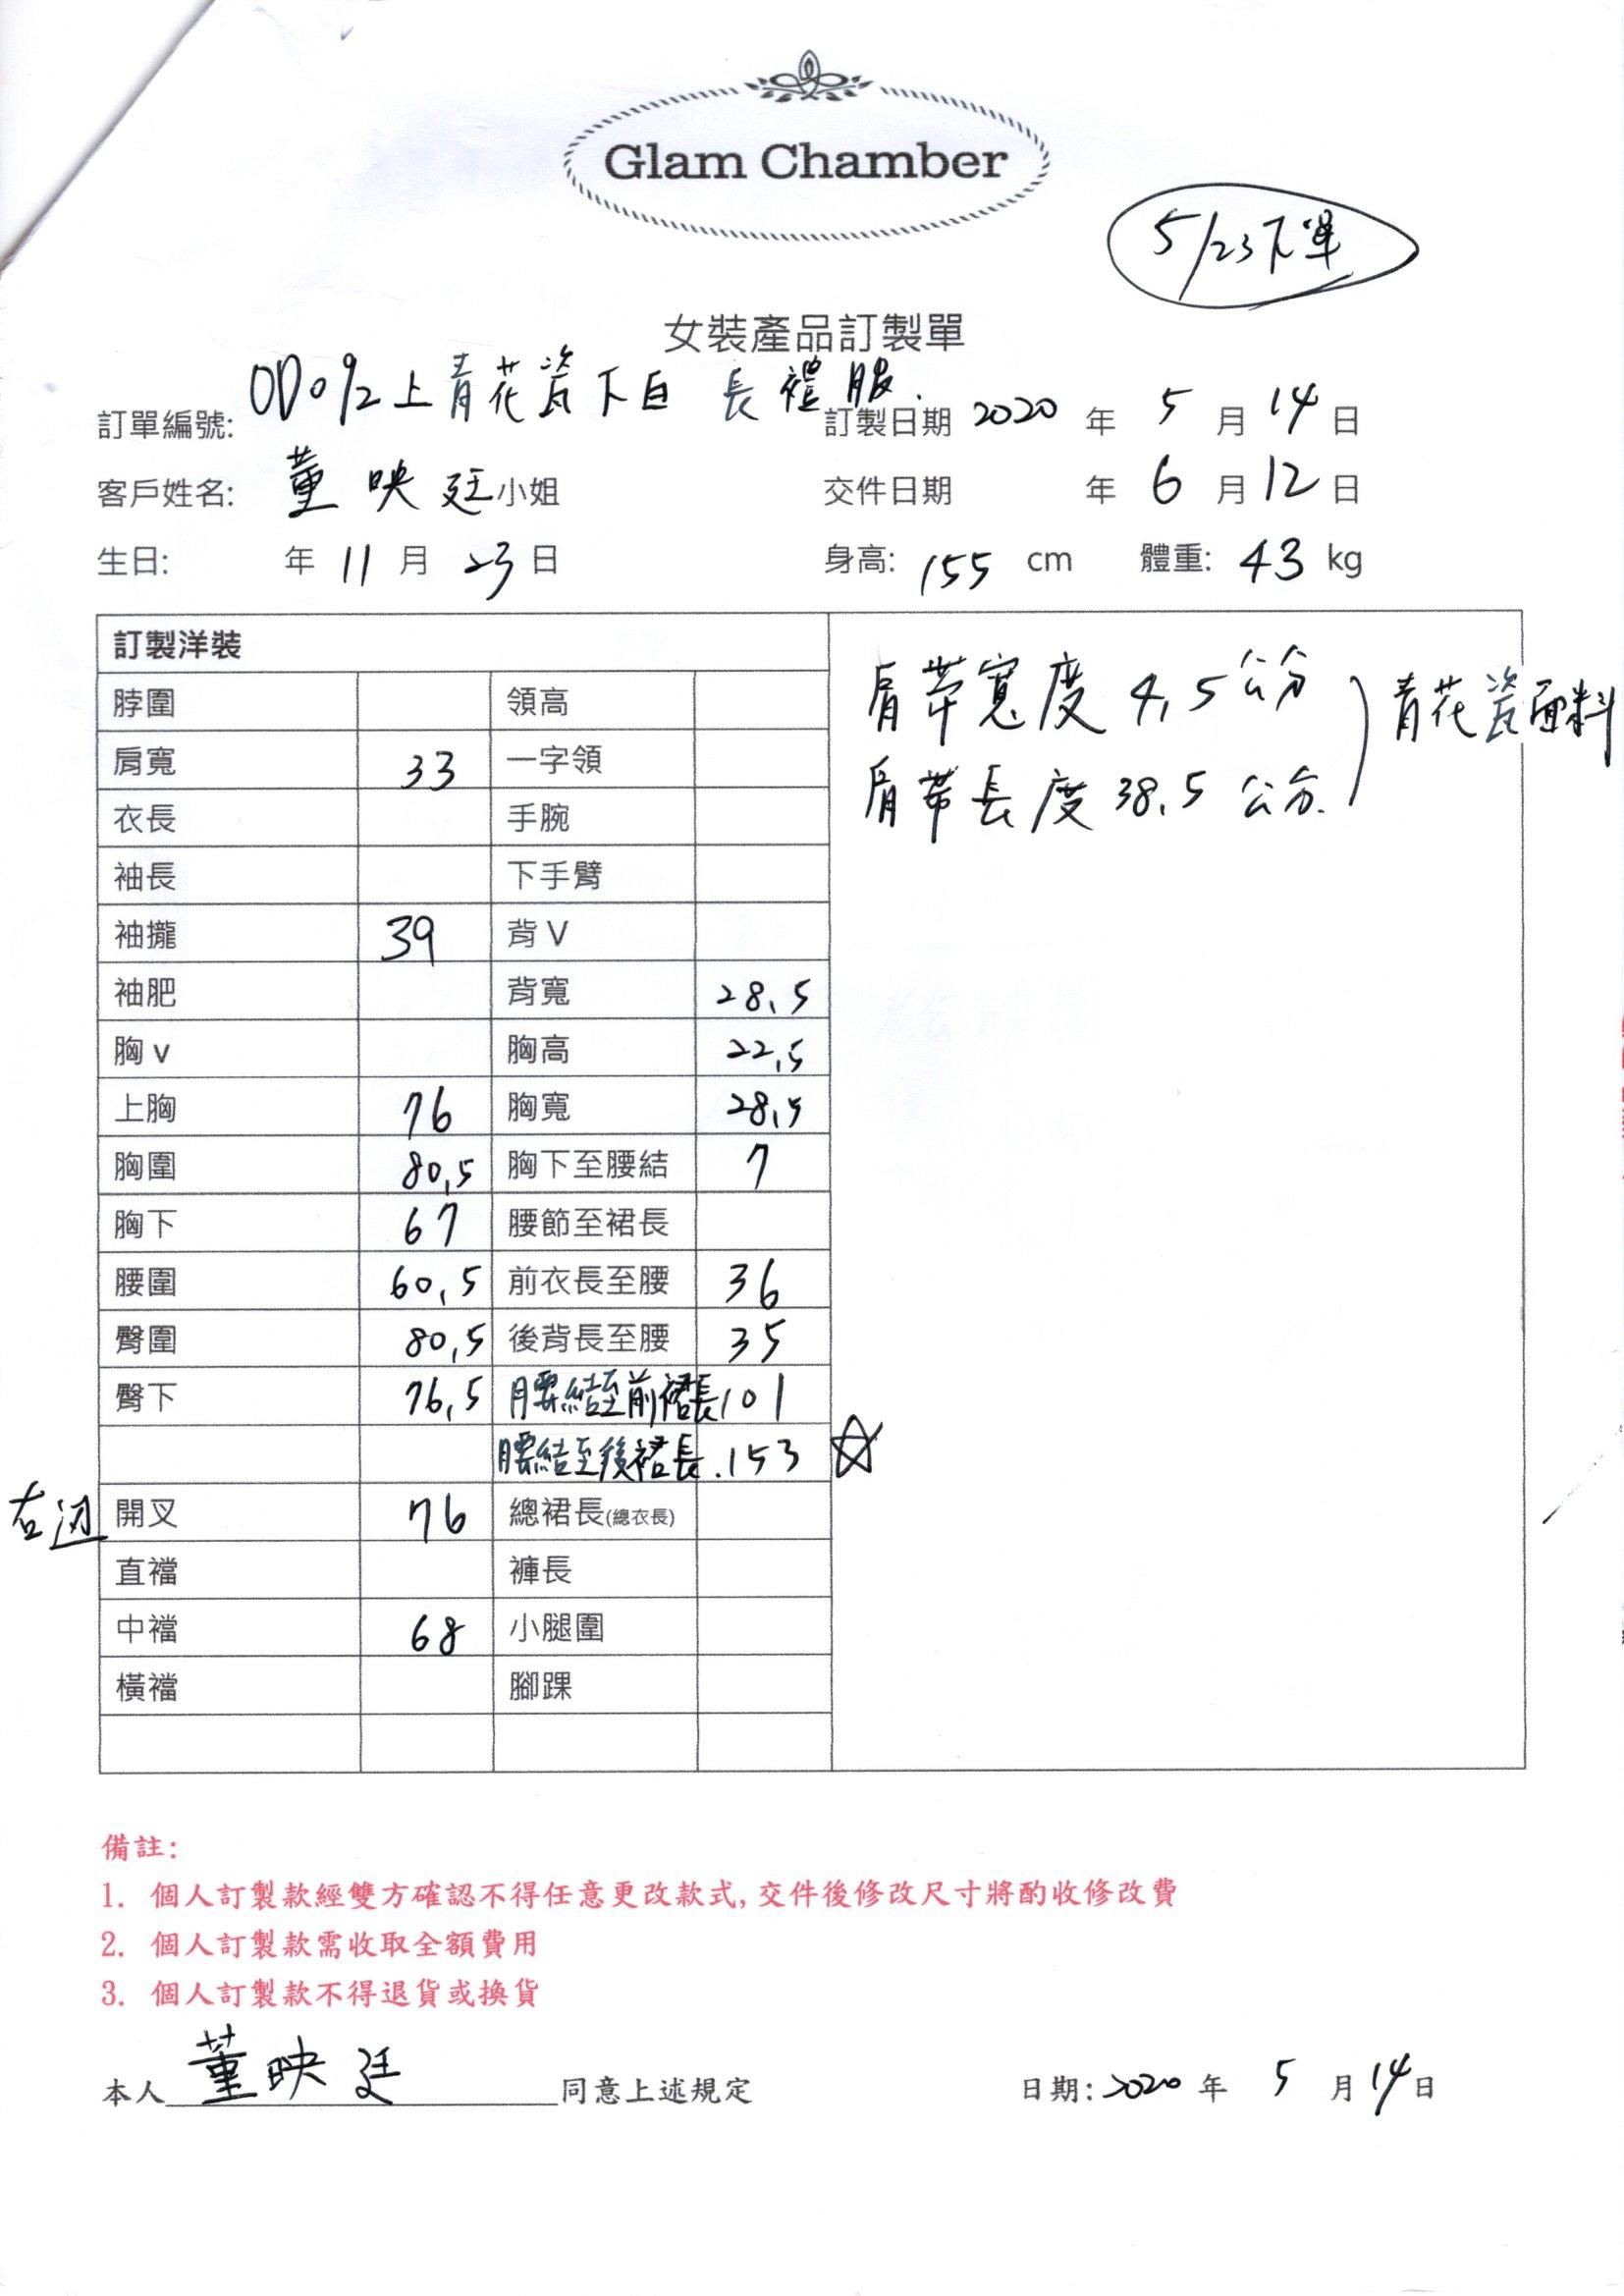 Glam Chamber
5/23下單
女裝產品訂製單
訂單編號: OD092上青花瓷下白 長禮服. 訂製日期 2020 年 5 月 14 日
客戶姓名: 董映廷小姐 交件日期 年 6 月 12 日
生日: 年 11 月 23 日 身高: 155 cm 體重: 43 kg
訂製洋裝
脖圍 領高
肩寬 33 一字領
衣長 手腕
袖長 下手臂
袖攏 39 背 V
袖肥 背寬 28.5
胸 v 胸高 22.5
上胸 76 胸寬 28.5
胸圍 80.5 胸下至腰結 7
胸下 67 腰節至裙長
腰圍 60.5 前衣長至腰 36
臀圍 80.5 後背長至腰 35
臀下 76.5 腰結至前裙長 101
腰結至後裙長. 153 ☆
右边 開叉 76 總裙長(總衣長)
直襠 褲長
中襠 68 小腿圍
橫襠 腳踝
肩帶寬度 4.5 公分
肩帶長度 38.5 公分.
) 青花瓷面料
備註:
1. 個人訂製款經雙方確認不得任意更改款式, 交件後修改尺寸將酌收修改費
2. 個人訂製款需收取全額費用
3. 個人訂製款不得退貨或換貨
本人 董映廷 同意上述規定 日期: 2020 年 5 月 14 日